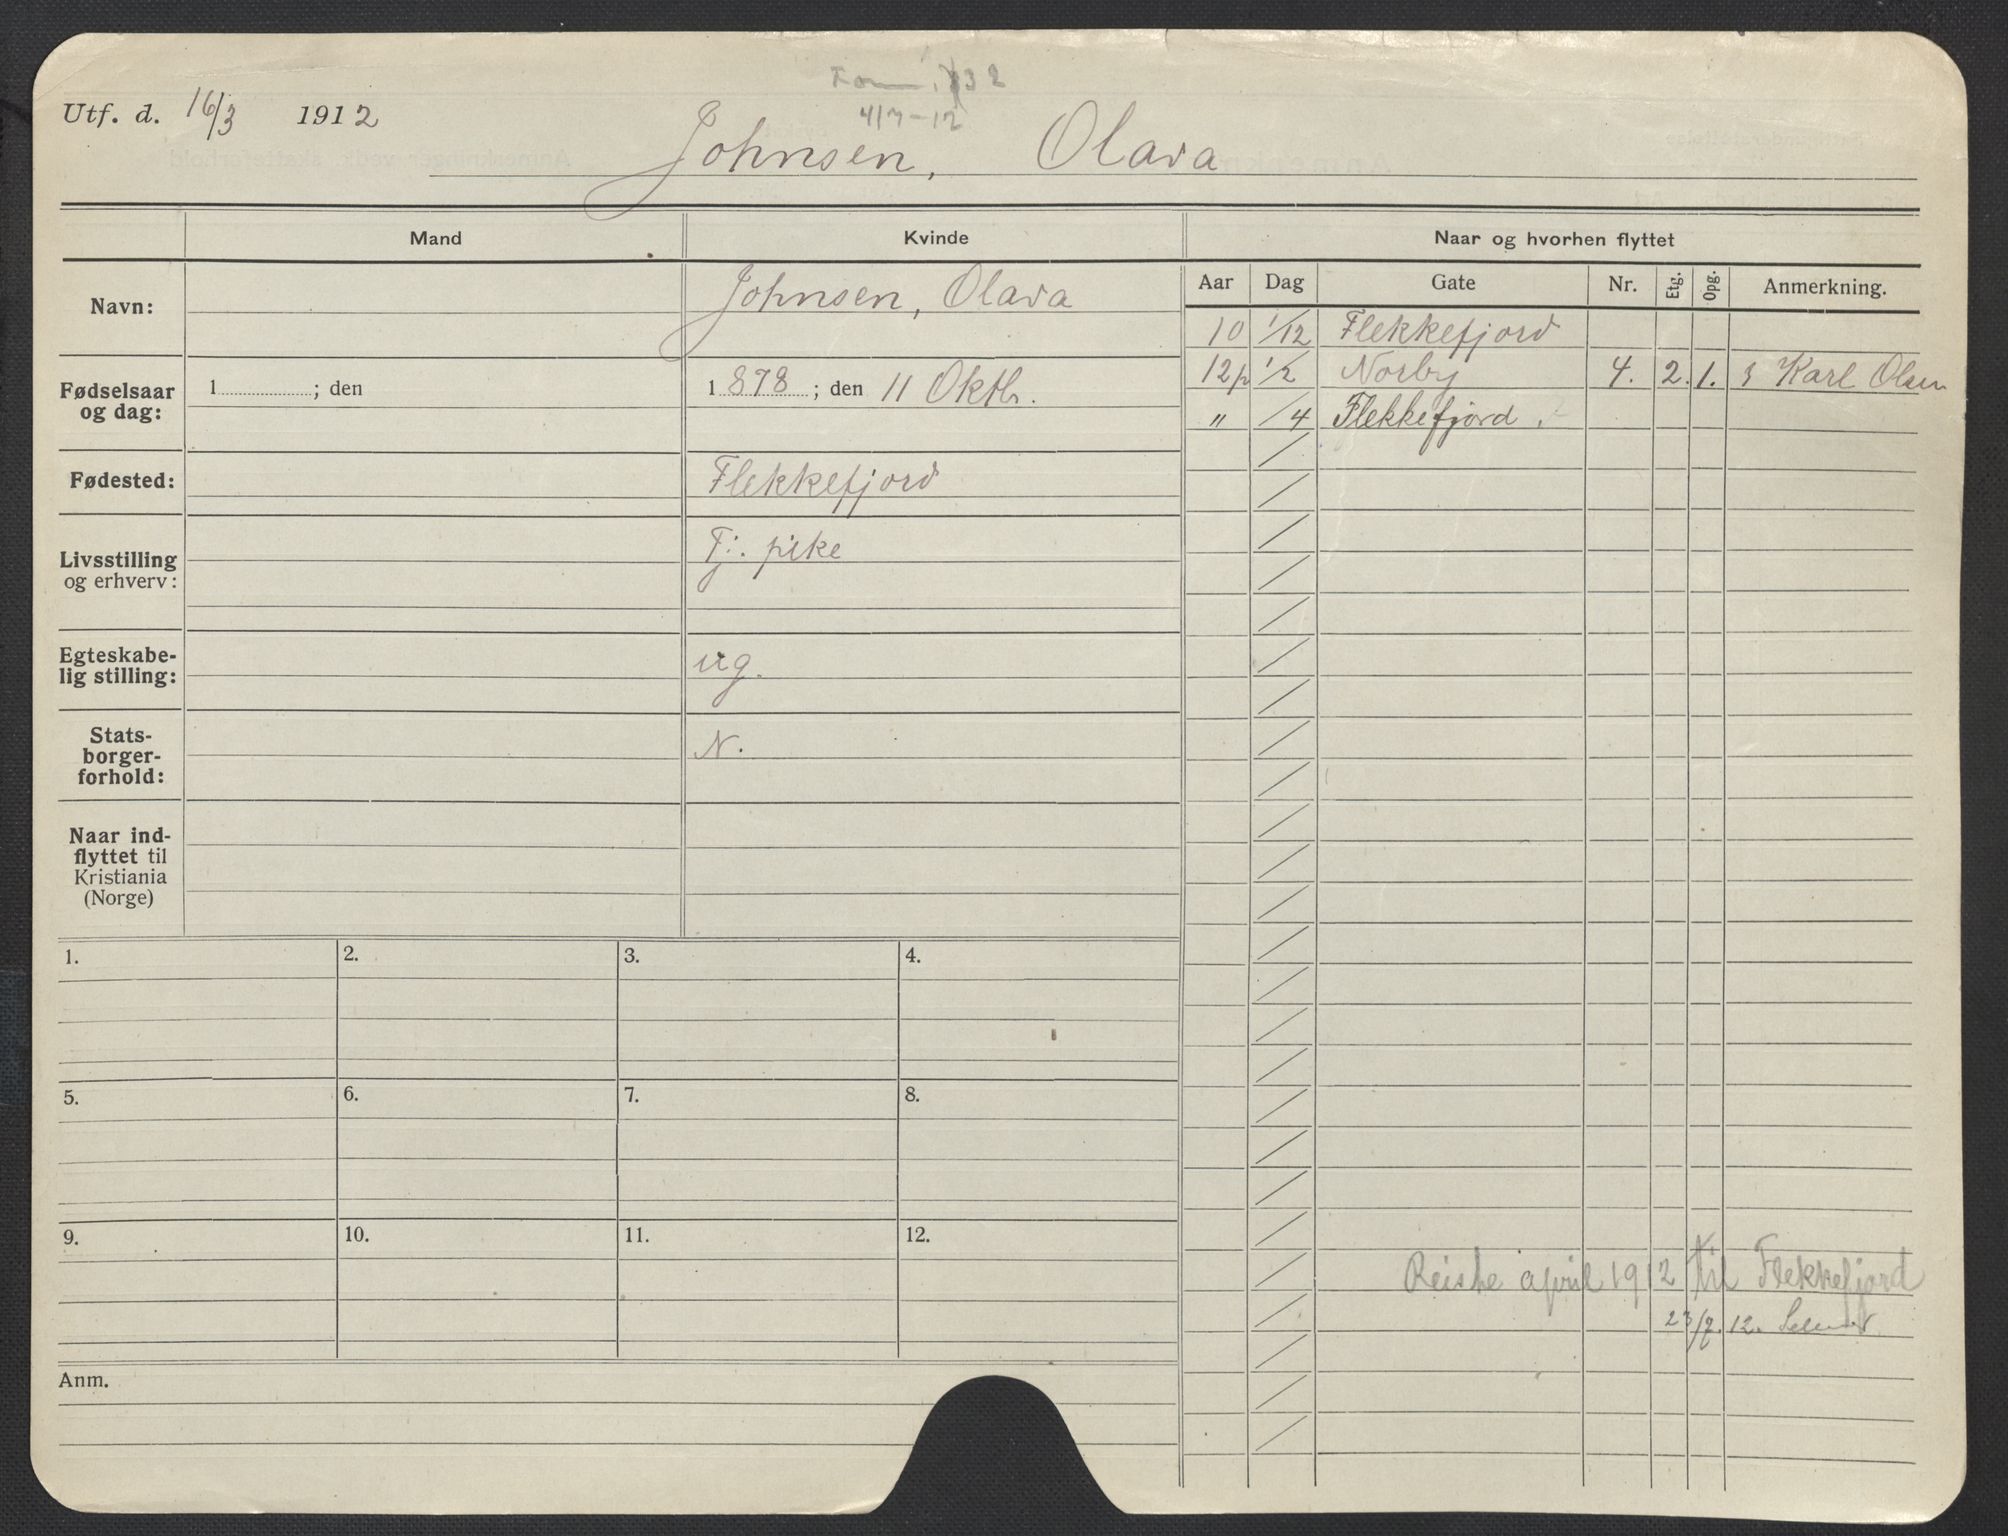 32
4/7-12
Utf. d. 16/3 1912
Johnsen, Olava
Mand Kvinde Naar og hvorhen flyttet
Aar Dag Gate Nr. Etg. Opg. Anmerkning.
Navn: Johnsen, Olava
10 1/12 Flekkefjord
12p 1/2 Norby 4. 2. 1. Karl Olsen
" /4 Flekkefjord.
Fødselsaar 1 ; den 1 878 ; den 11 Oktb.
og dag:
Fødested: Flekkefjord
Livsstilling Tj. pike
og erhverv:
Egteskabe- ug.
lig stilling:
Stats- N.
borger-
forhold:
Naar ind-
flyttet til
Kristiania
(Norge)
1. 2. 3. 4.
5. 6. 7. 8.
9. 10. 11. 12.
Reiste april 1912 til Flekkefjord
23/7. 12.
Anm.